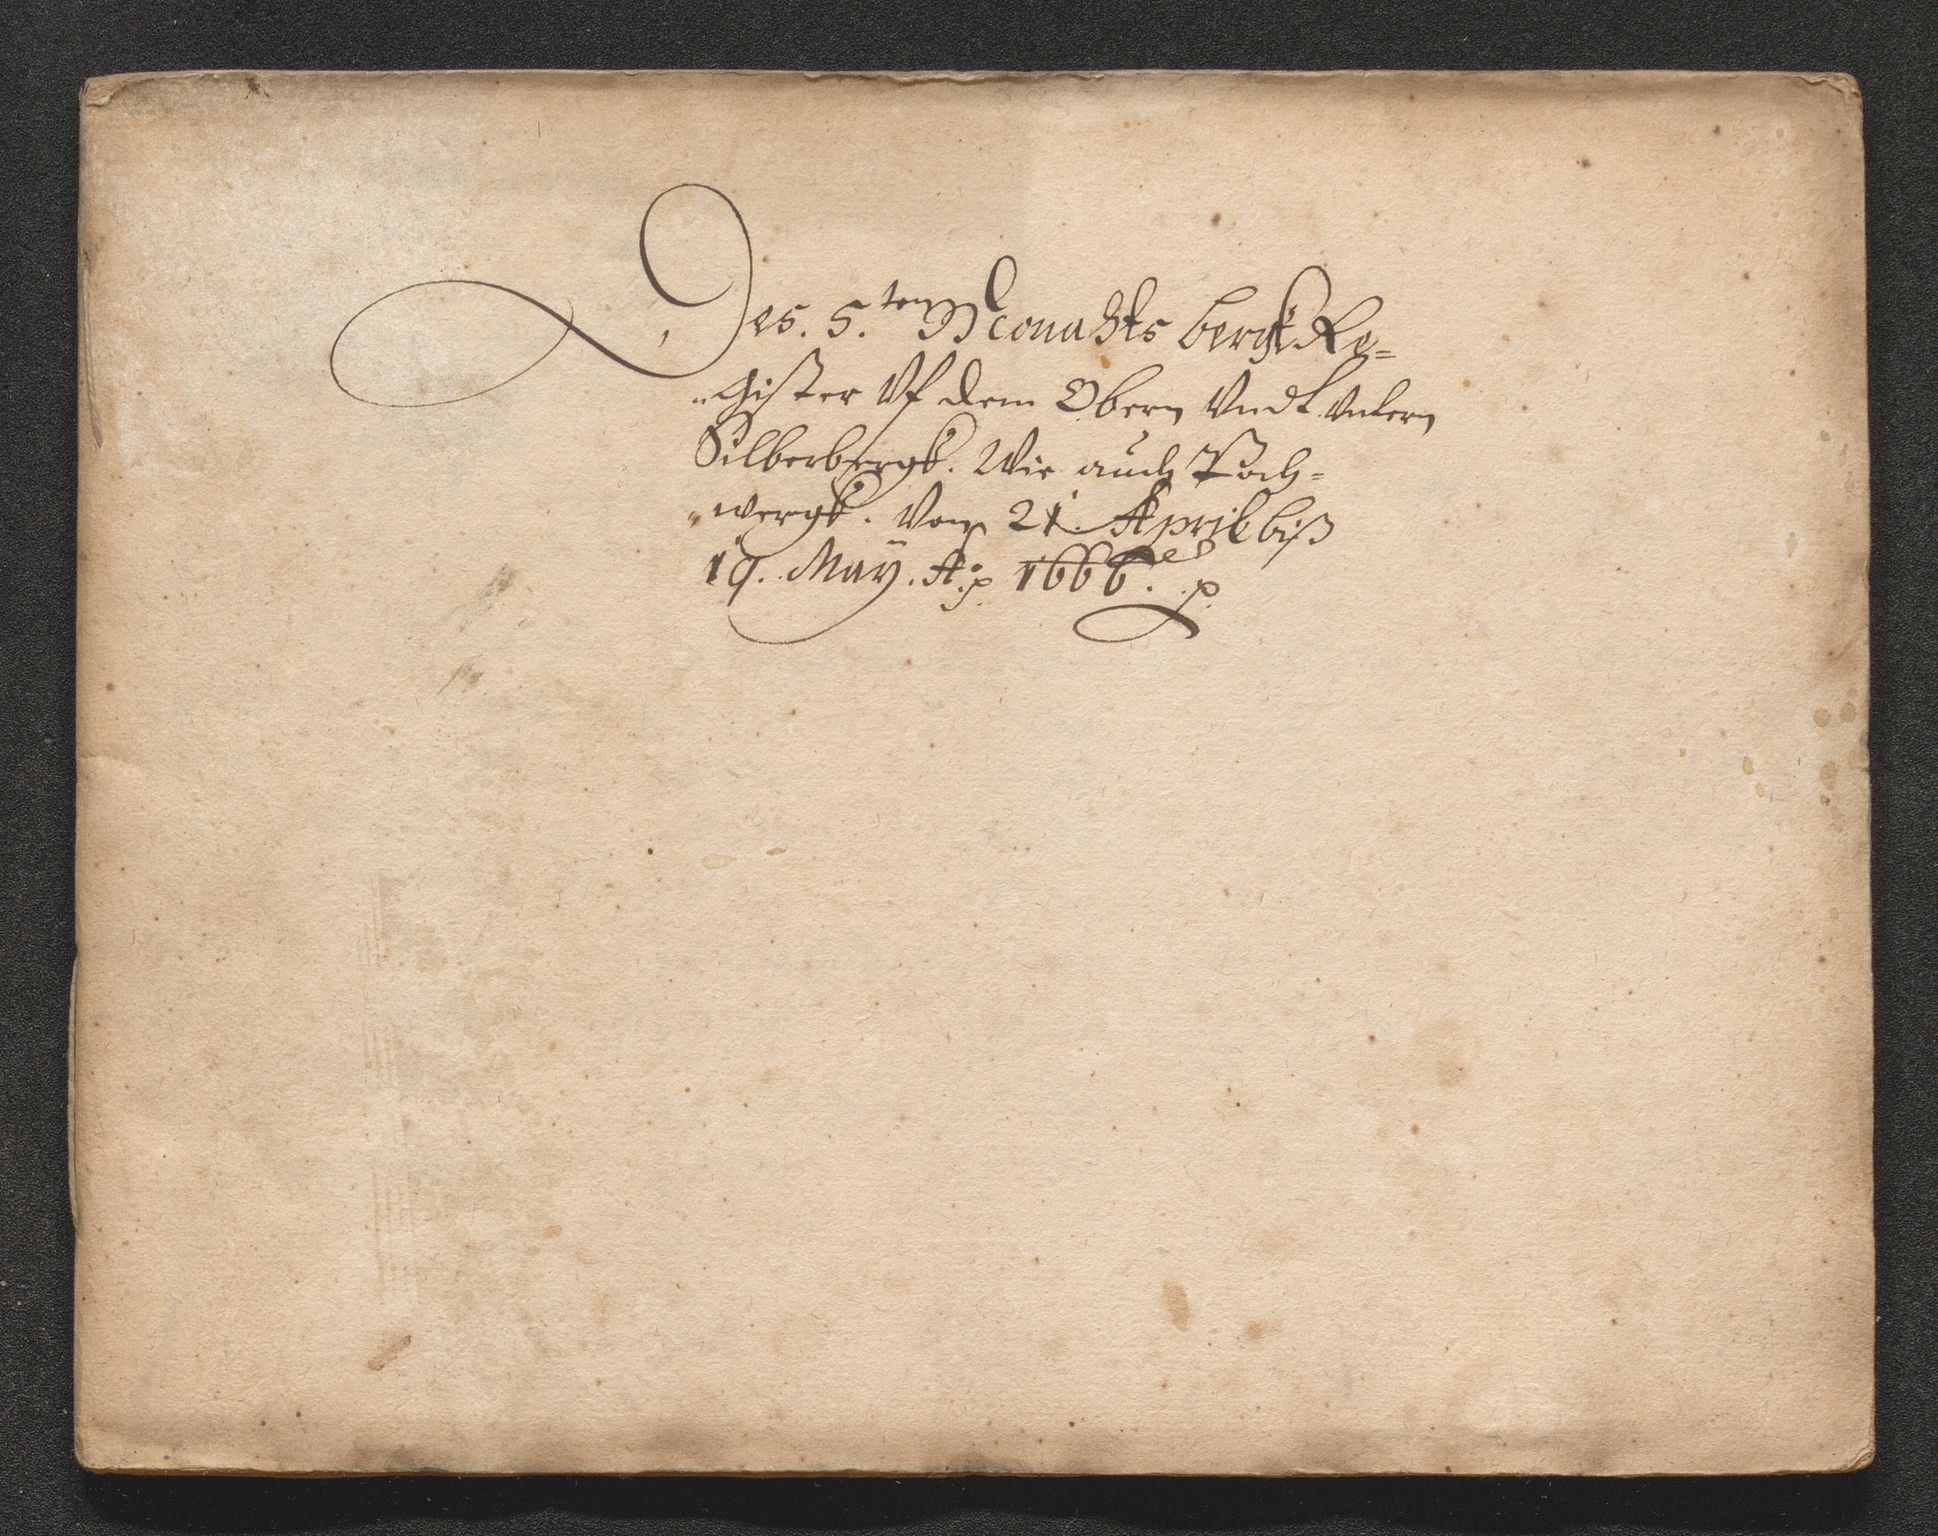 Des. 5.ten Monahts bergk Re=
gister Vf dem Obern Vndt Vntern
Silberbergk. Wie auch Poch=
wergk. Von 21. April biß
19. May. Aō: 1666.